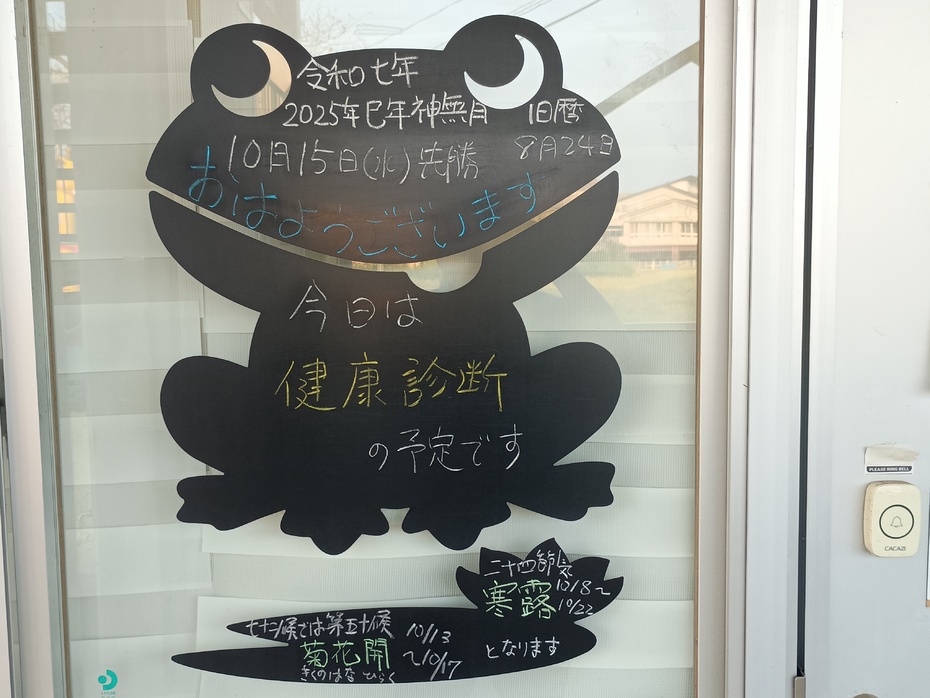 令和七年
2025年巳年神無月 旧暦
10月15日(水)先勝 8月24日
おはようございます
今日は
健康診断
の予定です
PLEASE RING BELL
CACAZI
二十四節気
寒露 10/8~
10/22
七十二候では第五十候 10/13
菊花開 ~10/17 となります
きくのはな ひらく